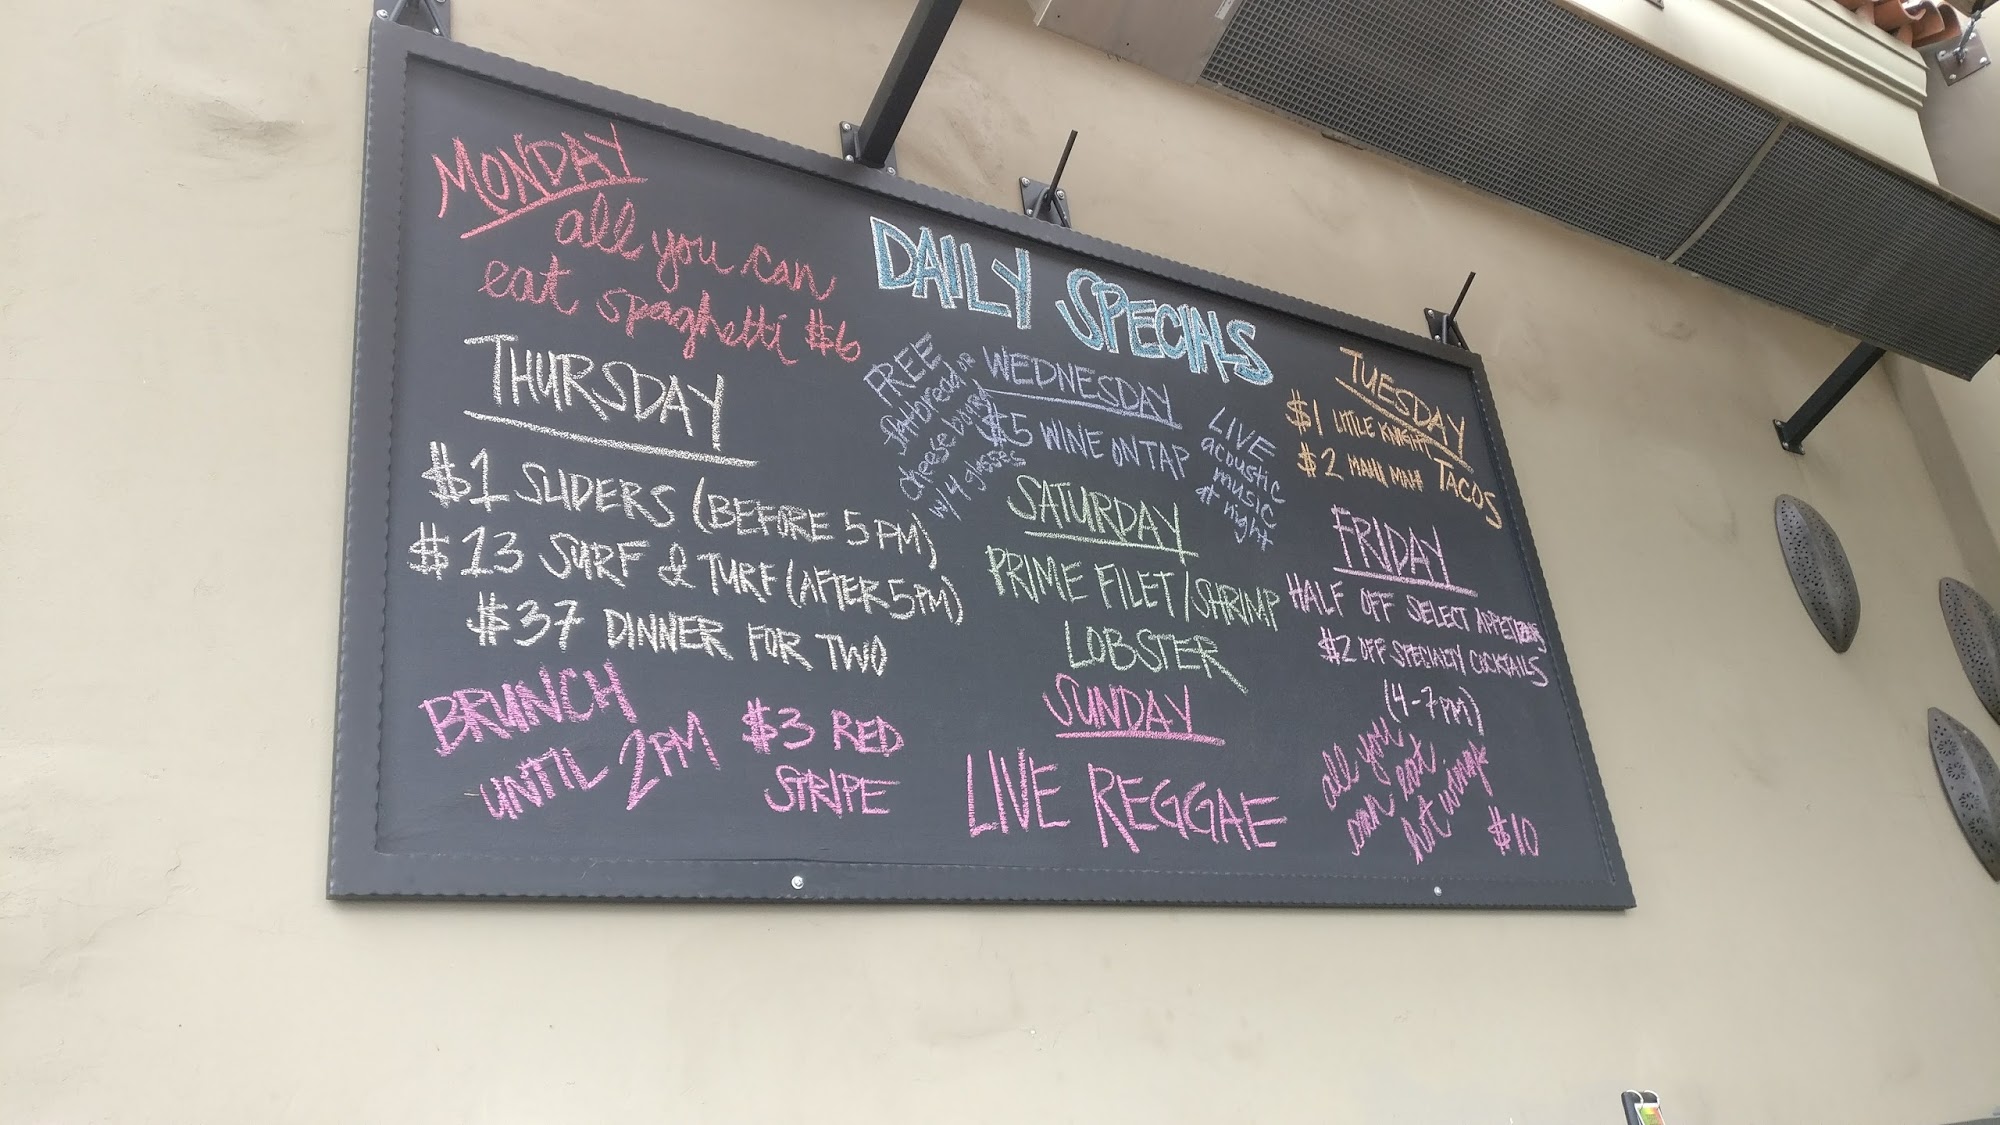 DAILY SPECIALS
MONDAY
all you can
eat spaghetti $6
TUESDAY
$1 LITTLE KNIGHT
$2 MAHI MAHI TACOS
WEDNESDAY
$5 WINE ON TAP
FREE
flatbread or
cheese board
w/ 4 glasses
LIVE
acoustic
music
at night
THURSDAY
$1 SLIDERS (BEFORE 5PM)
$13 SURF & TURF (AFTER 5PM)
$37 DINNER FOR TWO
FRIDAY
HALF OFF SELECT APPETIZERS
$2 OFF SPECIALTY COCKTAILS
(4-7PM)
SATURDAY
PRIME FILET/SHRIMP
LOBSTER
SUNDAY
LIVE REGGAE
BRUNCH
UNTIL 2PM
$3 RED
STRIPE
all you
can eat
hot wings
$10